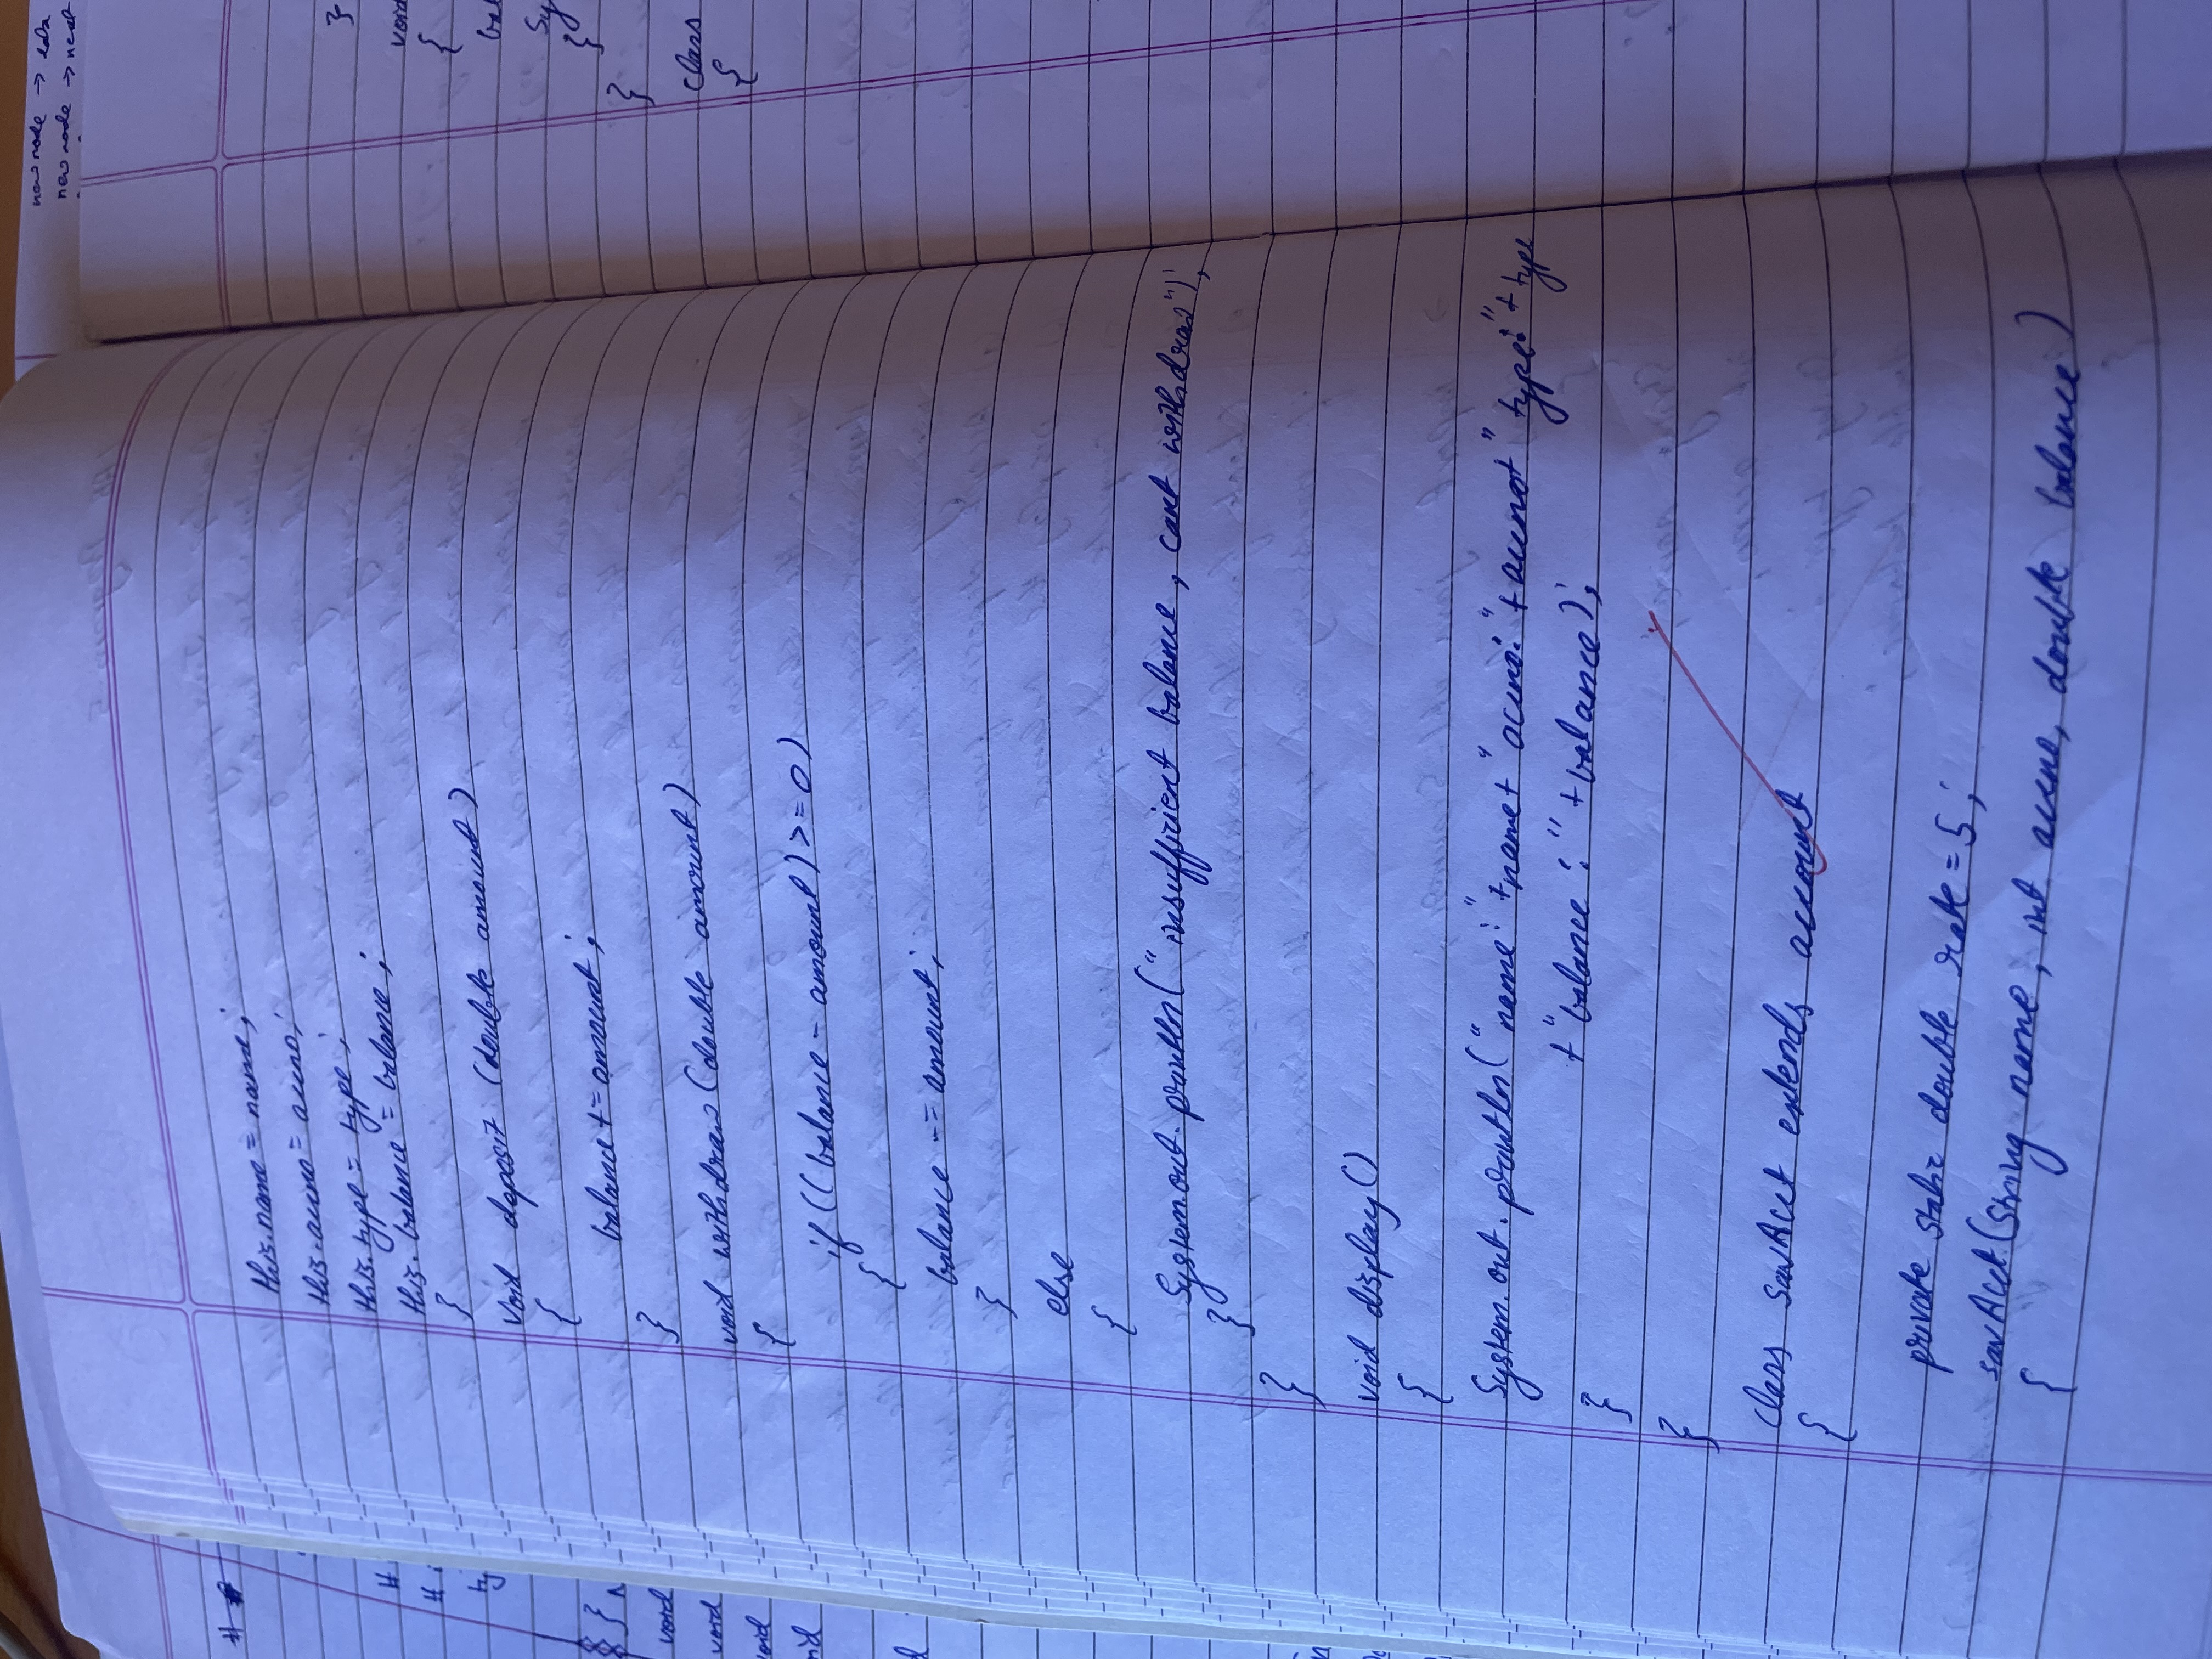 new node → data
new node → next
this.name = name;
this.accno = accno;
this.type = type;
this.balance = balance;
}
void deposit (double amount)
{
balance += amount;
}
void withdraw (double amount)
{
if ((balance - amount) >= 0)
{
balance -= amount;
}
else
{
System.out.println("insufficient balance, cant withdraw");
}
}
void display()
{
System.out.println("name:"+name+ "accno:"+accno+ "type:"+type
+"balance:" +balance);
}
}
class savAcct extends account
{
private static double rate = 5;
savAcct(String name, int accno, double balance)
{
#
#
#
ty
}
void
void
void
}
void
{
bal
Sy
}
}
class
{